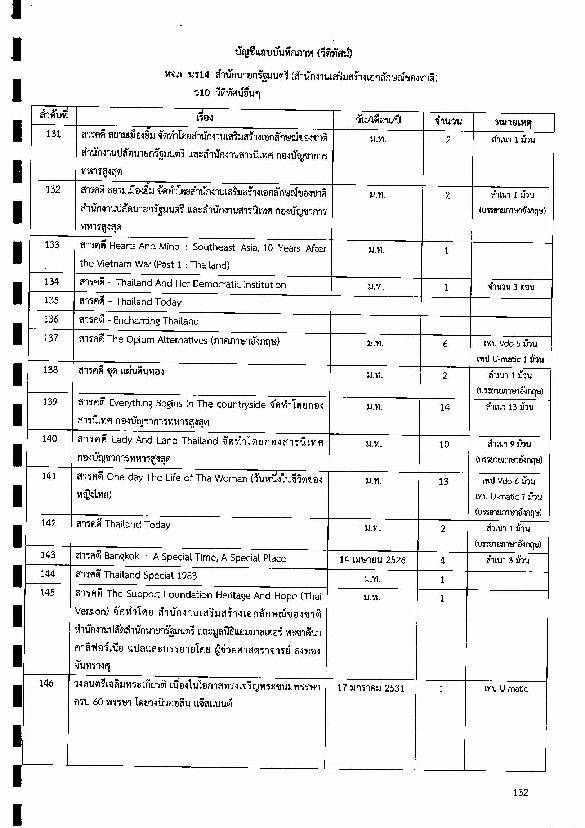 บัญชีแถบบันทึกภาพ (วีดิทัศน์)
หจช นร14 สำนักนายกรัฐมนตรี (สำนักงานเสริมสร้างเอกลักษณ์ของชาติ)
ว10 วีดิทัศน์อื่นๆ
ลำดับที่ เรื่อง วัน/เดือน/ปี จำนวน หมายเหตุ
131 สารคดี สยามเมืองยิ้ม จัดทำโดยสำนักงานเสริมสร้างเอกลักษณ์ของชาติ ม.ท. 2 สำเนา 1 ม้วน
สำนักงานปลัดนายกรัฐมนตรี และสำนักงานสารนิเทศ กองบัญชาการ
ทหารสูงสุด
132 สารคดี สยามเมืองยิ้ม จัดทำโดยสำนักงานเสริมสร้างเอกลักษณ์ของชาติ ม.ท. 2 สำเนา 1 ม้วน
สำนักงานปลัดนายกรัฐมนตรี และสำนักงานสารนิเทศ กองบัญชาการ (บรรยายภาษาอังกฤษ)
ทหารสูงสุด
133 สารคดี Hearts And Mind : Southeast Asia, 10 Years After ม.ท. 1
the Vietnam War (Past 1 : Thailand)
134 สารคดี - Thailand And Her Democratic Institution ม.ท. 1 จำนวน 3 ตอน
135 สารคดี - Thailand Today
136 สารคดี - Enchanting Thailand
137 สารคดี The Opium Alternatives (ภาคภาษาอังกฤษ) ม.ท. 6 เทป Vdo 5 ม้วน
เทป U-matic 1 ม้วน
138 สารคดี ชุด แผ่นดินทอง ม.ท. 2 สำเนา 1 ม้วน
(บรรยายภาษาอังกฤษ)
139 สารคดี Everything Begins In The countryside จัดทำโดยกอง ม.ท. 14 สำเนา 13 ม้วน
สารนิเทศ กองบัญชาการทหารสูงสุด
140 สารคดี Lady And Land Thailand จัดทำโดยกองสารนิเทศ ม.ท. 10 สำเนา 9 ม้วน
กองบัญชาการทหารสูงสุด (บรรยายภาษาอังกฤษ)
141 สารคดี One day The Life of Tha Woman (วันหนึ่งในชีวิตของ ม.ท. 13 เทป Vdo 6 ม้วน
หญิงไทย) เทป U-matic 7 ม้วน
(บรรยายภาษาอังกฤษ)
142 สารคดี Thailand Today ม.ท. 2 สำเนา 1 ม้วน
(บรรยายภาษาอังกฤษ)
143 สารคดี Bangkok : A Special Time, A Special Place 14 เมษายน 2526 4 สำเนา 3 ม้วน
144 สารคดี Thailand Special 1983 ม.ท. 1
145 สารคดี The Support Foundation Heritage And Hope (Thai ม.ท. 1
Version) จัดทำโดย สำนักงานเสริมสร้างเอกลักษณ์ของชาติ
สำนักงานปลัดสำนักนายกรัฐมนตรี และมูลนิธิ
คาลิฟอร์เนีย แปลและบรรยายโดย ผู้ช่วยศาสตราจารย์
จันทรางศุ
146 วงดนตรีเฉลิมพระเกียรติ เนื่องในโอกาสทรงเจริญพระชนมพรรษา 17 มกราคม 2531 1 เทป U-matic
ครบ 60 พรรษา
132